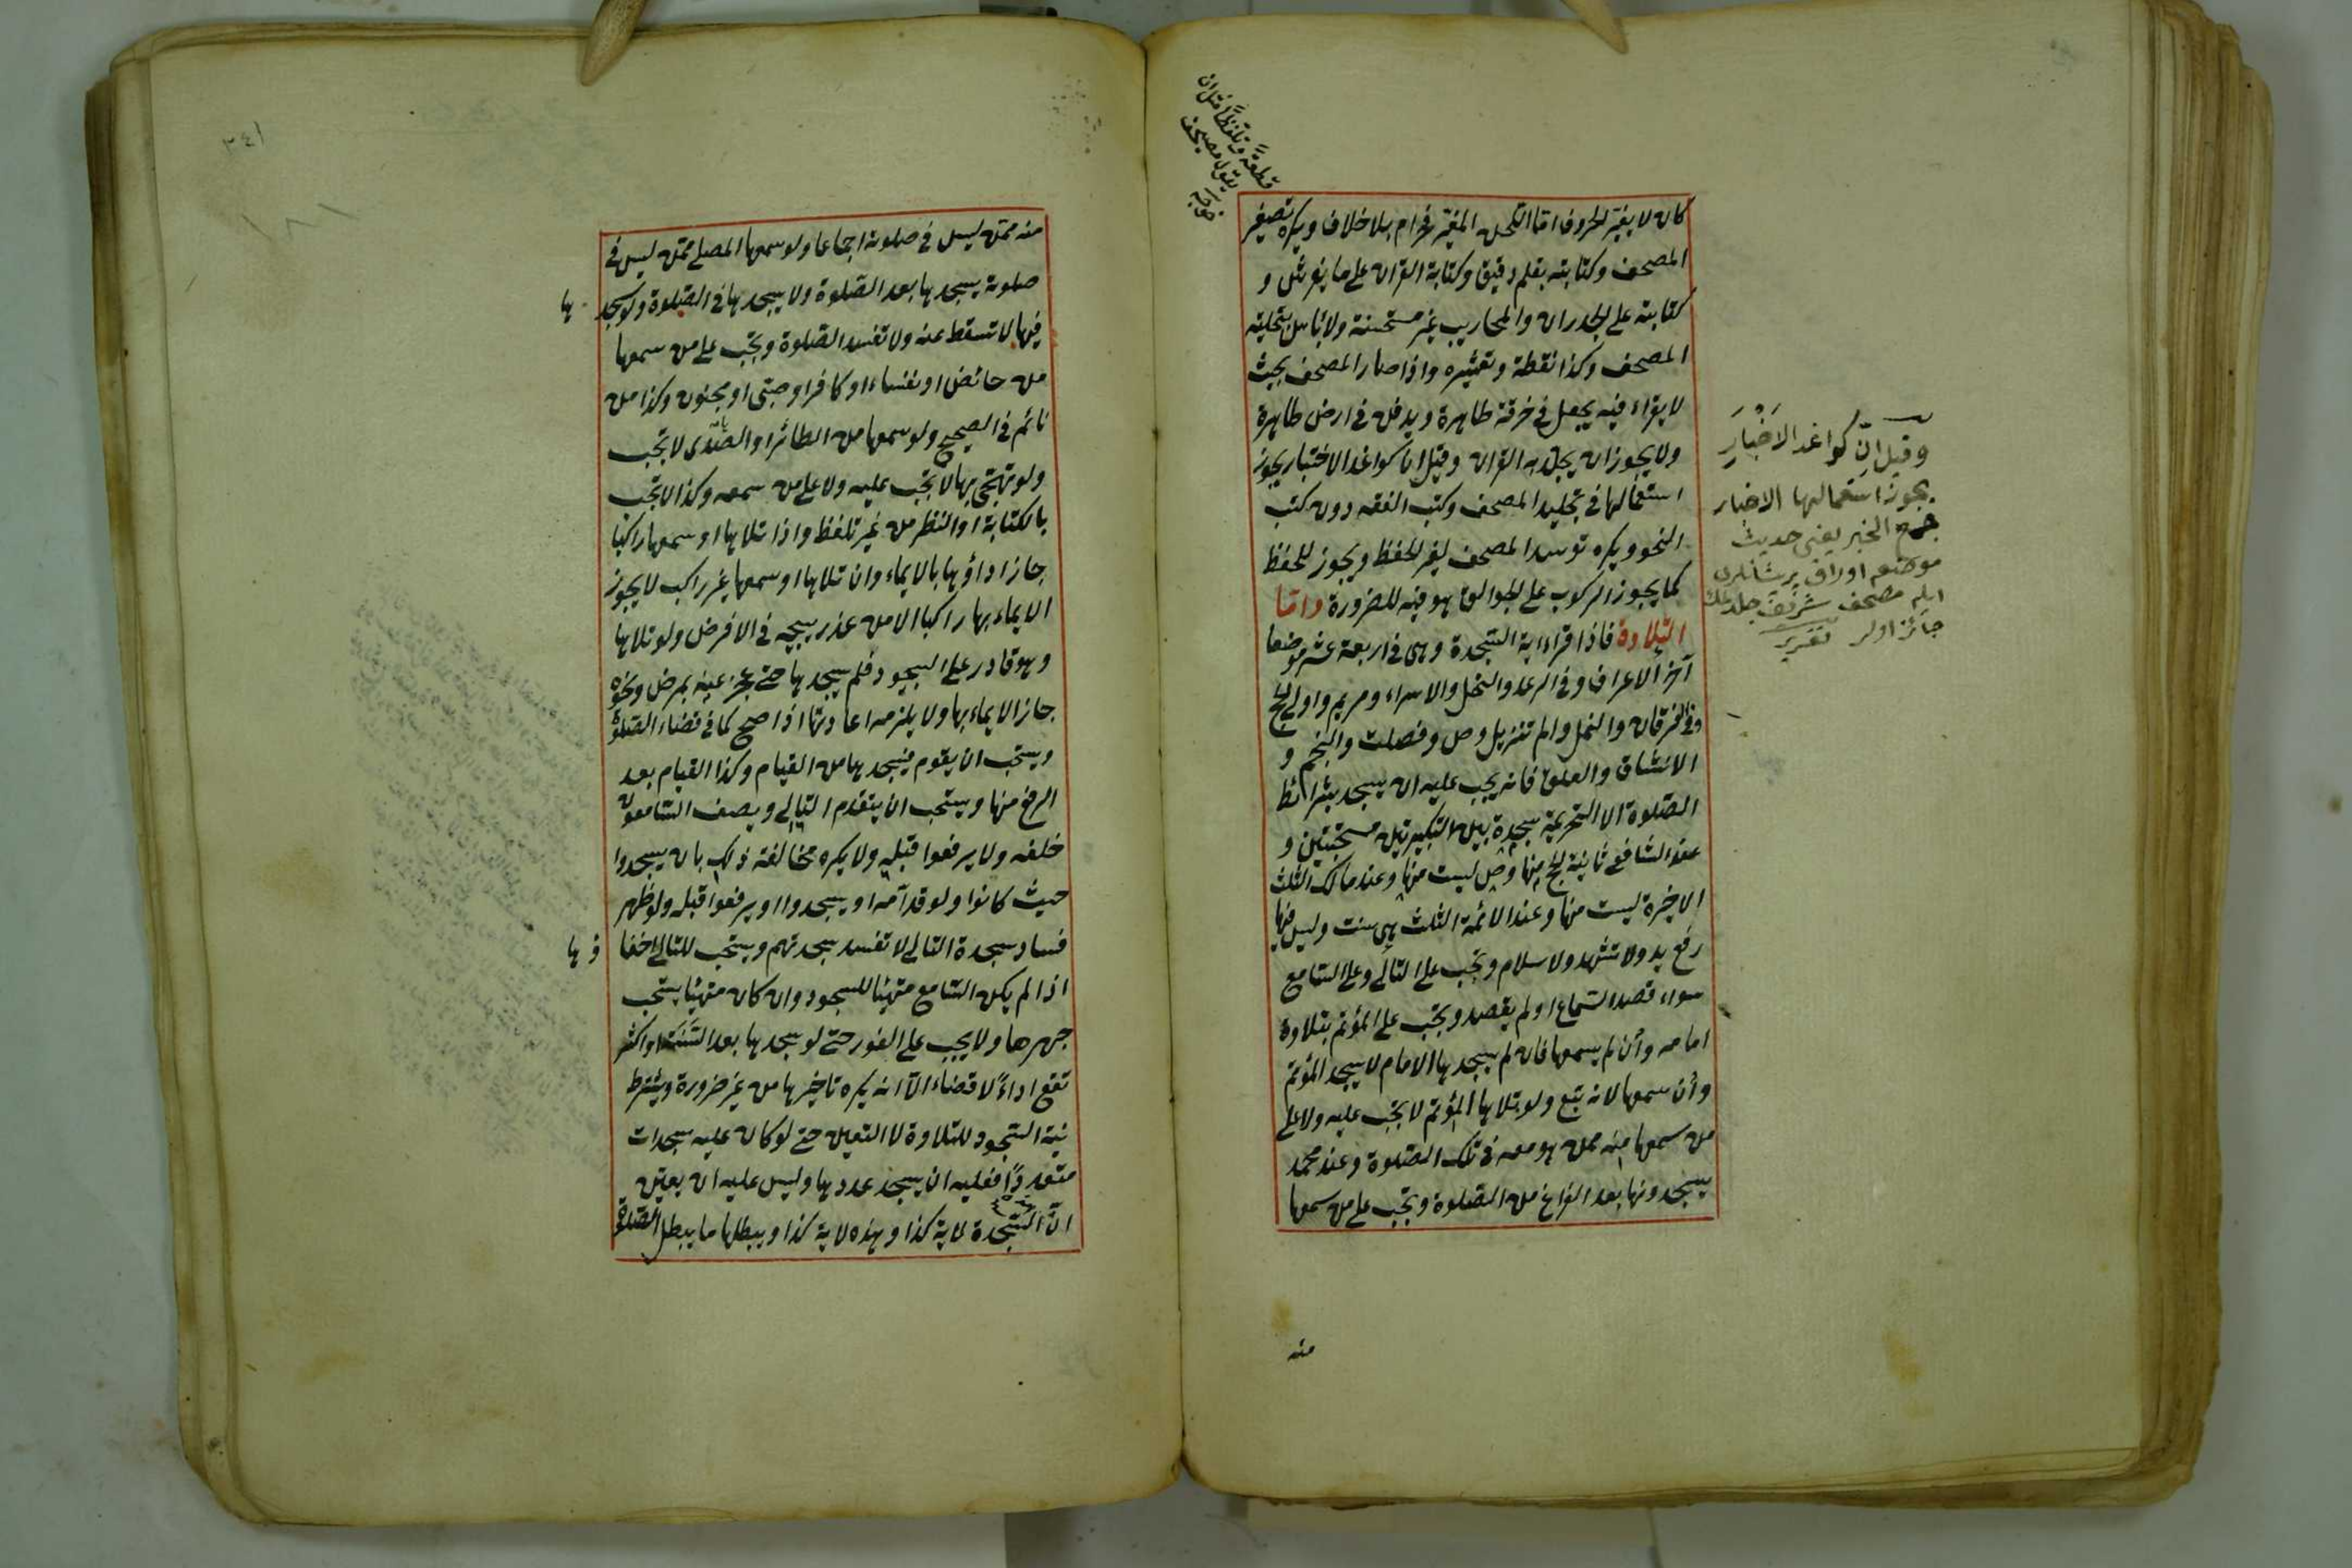 قطعة وتلفظاً مثل ان
يقول مصيحف
كان لا يغير الحروف اما اللحن المغير فحرام بلا خلاف ويكره تصغير
المصحف وكتابته بقلم دقيق وكتابة القران على ما يفرش و
كتابته على الجدران والمحاريب غير مستحسنة ولا باس بتحليته
المصحف وكذا نقطة وتعشيره واذا صار المصحف بحيث
لا يقراء فيه يجعل في خرقة طاهرة ويدفن في ارض طاهرة
ولا يجوز ان يجلد به القران وقيل ان كواغد الاختبار يجوز
استعمالها في تجليد المصحف وكتب الفقه دون كتب
النحو ويكره توسد المصحف لغير الحفظ ويجوز للحفظ
كما يجوز الركوب على الجوالق هو فيه للضرورة واما
التلاوة فاذا قراء اية السجدة وهى في اربعة عشر موضعا
آخر الاعراف وفي الرعد والنحل والاسراء ومريم واولى الحج
وفي الفرقان والنمل والم تنزيل وص وفصلت والنجم و
الانشقاق والعلق فانه يجب عليه ان يسجد بشرائط
الصلوة الا التحريمة سجدة بين التكبيرتين مستحبتين و
عند الشافعي ثانية الحج منها وص ليست منها وعند مالك الثلث
الاخيرة ليست منها وعند الائمة الثلث هى سنت وليس فيها
رفع يد ولا تشهد ولا سلام وتجب على التالى وعلى السامع
سواء قصد السماع او لم يقصد وتجب على المؤتم بتلاوة
امامه وأن لم يسمعها فان لم يسجد بها الامام لا يسجد المؤتم
وأن سمعها لانه تبع ولو تلاها المؤتم لا تجب عليه ولا على
من سمعها منه ممن هو معه في تلك الصلوة وعند محمد
يسجدونها بعد الفراغ من الصلوة وتجب على من سمعها
منه
وقيل انّ كواغد الاخبار
يجوز استعمالها الاخبار
جمع الخبر يعنى حديث
موضع اوراق پريشانلرى
ايله مصحف شريف جلدلمك
جائز اولر تقرير
٣٤١
منه ممن ليس في صلوته اجماعا ولو سمعها المصلى ممن ليس في
صلوته يسجد بها بعد الصلوة ولا يسجد بها في الصلوة ولو سجد ها
فيها لا تسقط عنه ولا تفسد الصلوة وتجب على من سمعها
من حائض او نفساء او كافر او صبى او مجنون وكذا من
نائم في الصحيح ولو سمعها من الطائر او الصدى لا تجب
ولو تهجى بها لا تجب عليه ولا على من سمعه وكذا لا تجب
بالكتابة او النظر من غير تلفظ واذا تلاها او سمعها راكبا
جاز اداؤها بالايماء وان تلاها او سمعها غير راكب لا يجوز
الايماء بها راكبا الا من عذر يبيحه في الافرض ولو تلاها
وهو قادر على السجود فلم يسجد ها حتى عجز عنه بمرض ونحوه
جاز الايماء بها ولا يلزمه اعادتها اذا صح كما في قضاء الصلوة
ويستحب ان يقوم فيسجد بها من القيام وكذا القيام بعد
الرفع منها ويستحب ان يتقدم التالى ويصف السامعون
خلفه ولا يرفعوا قبله ولا يكره مخالفة ذلك بان يسجدوا
حيث كانوا ولو قدامه او يسجدوا او يرفعوا قبله ولو ظهر
فساد سجدة التالى لا تفسد سجدتهم ويستحب للتالى اخفا ؤها
اذا لم يكن السامع متهيئا للسجود وان كان متهيئا يستحب
جهرها ولا يجب على الفور حتى لو سجد بها بعد السنة او اكثر
تقع اداءً لا قضاء الّا انه يكره تاخيرها من غير ضرورة ويشترط
نية السجود للتلاوة لا التعيين حتى لو كان عليه سجدات
متعددًا فعليه ان يسجد عددها وليس عليه ان يعين
انّ السجدة لاية كذا وهذه لاية كذا ويبطلها ما يبطل الصلوة